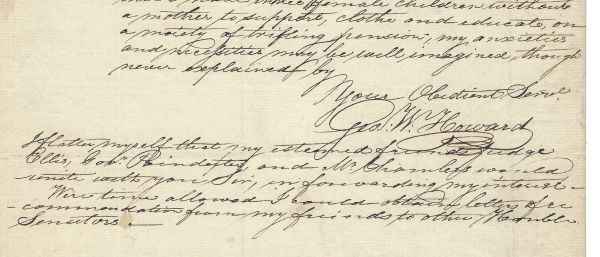 female children without
a mother to support, clothe and educate, on
a moiety of trifling pension; my anxieties
and necessities may be well imagined, though
never explained by
Your Obedient Servt.
Geo. W. Howard
I flatter myself that my esteemed friends Judge
Ellis, Poindexter, and Mr. Chambers would
unite with you Sir, in forwarding my interest -
Were time allowed I could obtain letters of re
- commendation from my friends to other Honble
Senators. -